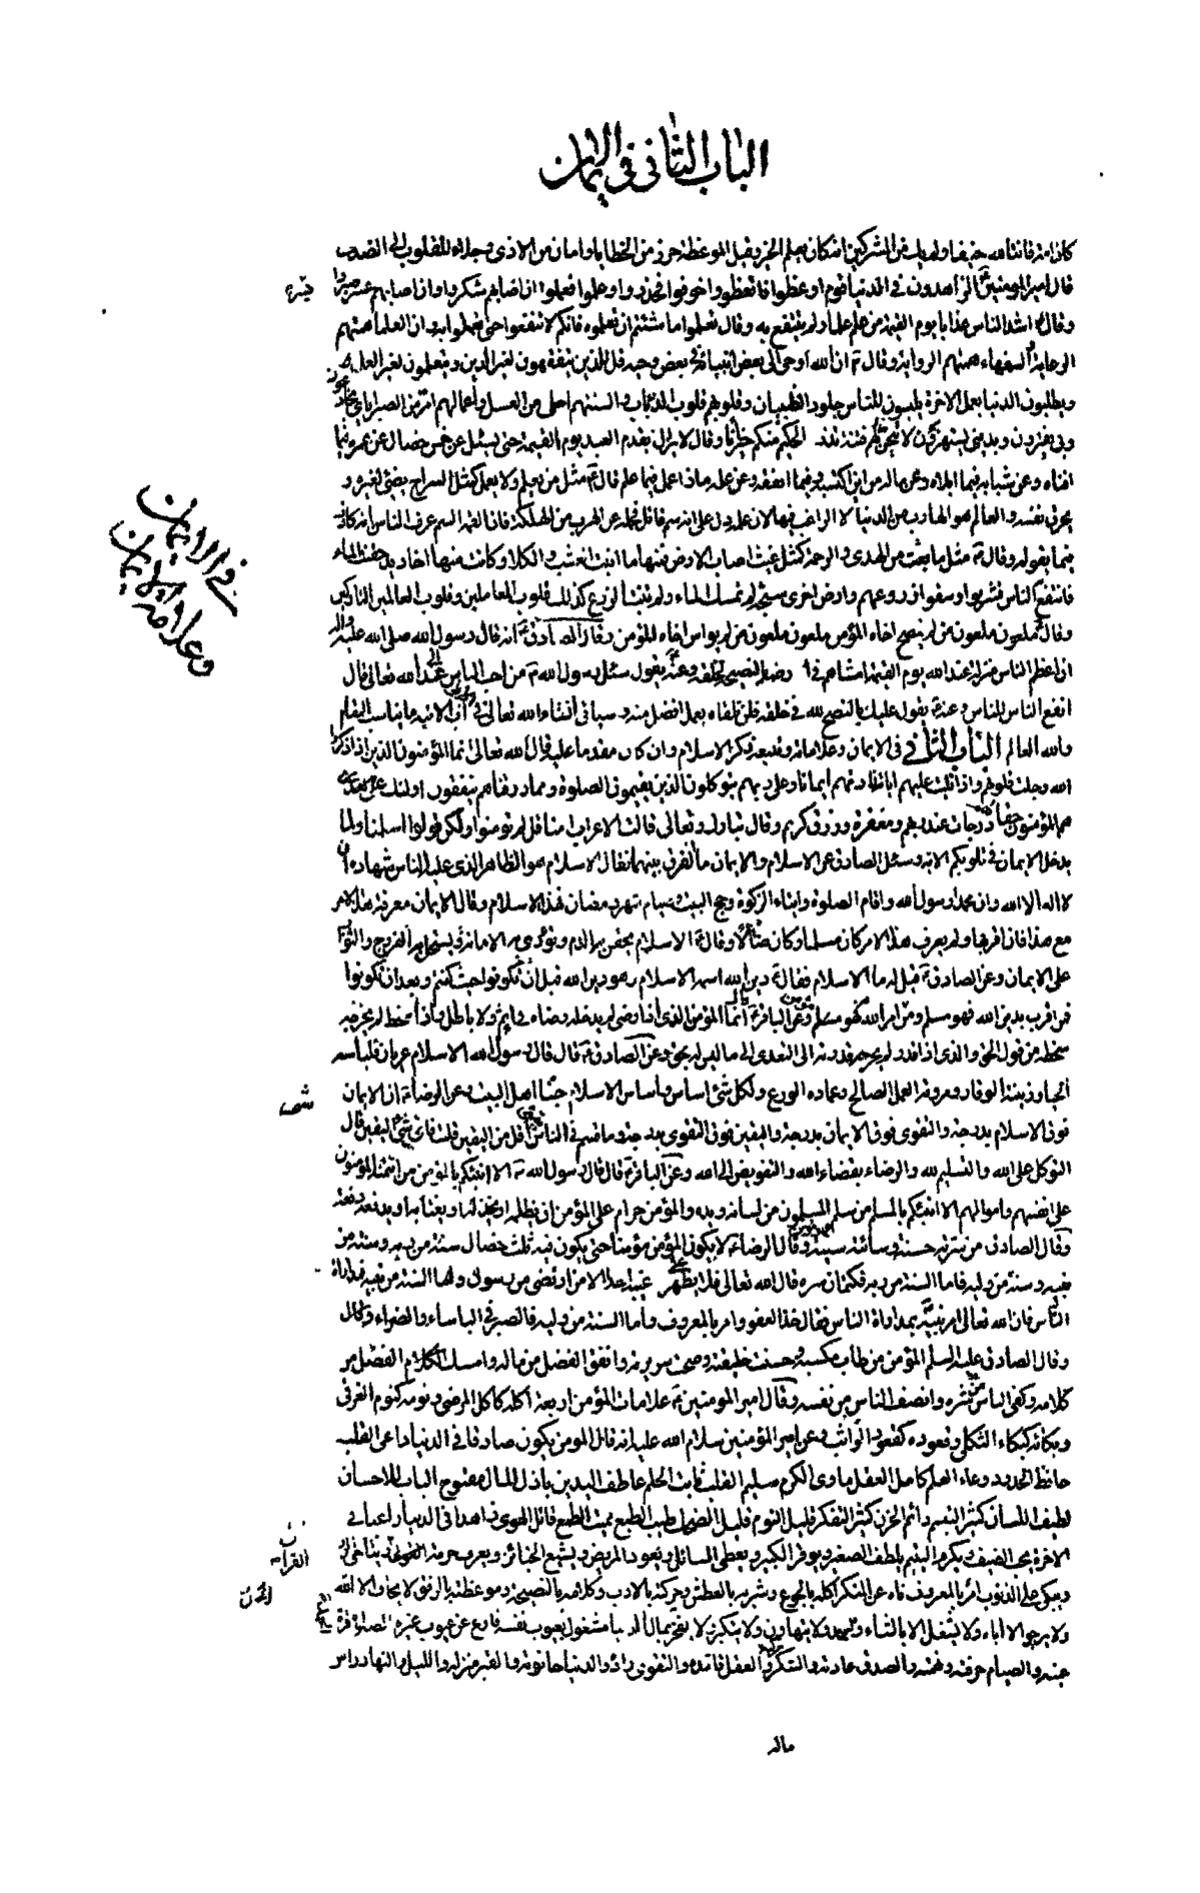 الباب الثانی فی الایمان
كان امة قانتا لله حنيفا ولم يك من المشركين انه كان يعلم الخير وقيل الموعظة حرز من الخطايا وامان من الاذى وجلاء للقلوب الى الصدى
قال امير المؤمنين الزاهدون فى الدنيا قوم اوعظوا فاتعظوا واخوفوا فحذروا وعلموا فعملوا ان اصابهم شكروا وان اصابهم عسر صبروا
وقال اشد الناس عذابا يوم القيمة من علم علما ولم ينتفع به وقال تعلموا ما شئتم ان تعلموه فانكم لا تنتفعوا حتى تعملوا به وان العلماء همتهم
الرعاية والسفهاء همتهم الرواية وقال ان الله اوحى الى بعض انبيائه فى بعض وحيه قل للذين يتفقهون لغير الدين ويتعلمون لغير العلم
ويطلبون الدنيا بعمل الاخرة يلبسون للناس جلود الظبيان وقلوبهم قلوب الذئاب والسنتهم احلى من العسل واعمالهم امر من الصبر اياى يخادعون
وبى يغترون وبدينى يستهزؤن لاتيحن لهم فتنة تذر الحكيم منكم حيرانا وقال لا يزال يقدم العبد يوم القيمة حتى يسئل عن خمس خصال عن عمره فيما
افناه وعن شبابه فيما ابلاه وعن ماله من اين اكتسبه وفيما انفقه وعن علمه ماذا عمل فيما علم قال مثل من يعلم ولا يعمل كمثل السراج يضئ لغيره و
يحرق نفسه والعالم هو الهارب من الدنيا لا الراغب فيها لان علمه دل على انه سم قاتل فحمله عن الهرب من الهلكة فاذا التقم السم عرف الناس انه كاذب
فيما يقوله وقال مثل ما بعثت من الهدى والرحمة كمثل غيث اصاب الارض فمنها ما انبت العشب والكلاء وكانت منها اخاديد حفظت الماء
فانتفع الناس فشربوا وسقوا زروعهم وارض اخرى سبخة لم تمسك الماء ولم تنبت الزرع كذلك قلوب العاملين وقلوب العالمين التاركين
وقال ملعون ملعون من لم ينصح اخاه المؤمن ملعون ملعون من لم يواس اخاه المؤمن وقال الصادق انه قال رسول الله صلى الله عليه واله
ان اعظم الناس منزلة عند الله يوم القيمة امشاهم فى ارضه بالنصيحة لخلقه وعنه يقول سئل رسول الله من احب الناس الى الله تعالى قال
انفع الناس للناس وعنه يقول عليك بالنصح لله فى خلقه فلن تلقاه بعمل افضل منه وسياتى انشاء الله تعالى فى الاتية ما يناسب المقام
والله العالم الباب الثانى فى الايمان وعلاماته وفيه ذكر الاسلام وان كان مقدما عليه قال الله تعالى انما المؤمنون الذين اذا ذكر
الله وجلت قلوبهم واذا تليت عليهم اياته زادتهم ايمانا وعلى ربهم يتوكلون الذين يقيمون الصلوة ومما رزقناهم ينفقون اولئك
هم المؤمنون حقا لهم درجات عند ربهم ومغفرة ورزق كريم وقال تبارك وتعالى قالت الاعراب امنا قل لم تؤمنوا ولكن قولوا اسلمنا ولما
يدخل الايمان فى قلوبكم الاية وسئل الصادق عن الاسلام والايمان ما الفرق بينهما فقال الاسلام هو الظاهر الذى عليه الناس شهادة ان
لا اله الا الله وان محمدا رسول الله واقام الصلوة وايتاء الزكوة وحج البيت وصيام شهر رمضان فهذا الاسلام وقال الايمان معرفة هذا الامر
مع هذا فان اقر بها ولم يعرف هذا الامر كان مسلما وكان ضالا وقال الاسلام يحقن به الدم وتؤدى به الامانة ويستحل به الفروج والثواب
على الايمان وعن الصادق قيل له ما الاسلام فقال دين الله اسمه الاسلام وهو دين الله قبل ان تكونوا حيث كنتم وبعد ان تكونوا
فمن اقر بدين الله فهو مسلم ومن عمل بما امر الله فهو مؤمن وعن الباقر انما المؤمن الذى اذا رضى لم يدخله رضاه فى اثم ولا باطل واذا سخط لم يخرجه
سخطه من قول الحق والذى اذا قدر لم يخرجه قدرته الى التعدى الى ما ليس له بحق وعن الصادق قال قال رسول الله الاسلام عريان فلباسه
الحياء وزينته الوقار ومروته العمل الصالح وعماده الورع ولكل شئ اساس واساس الاسلام حبنا اهل البيت وعن الرضا ان الايمان
فوق الاسلام بدرجة والتقوى فوق الايمان بدرجة واليقين فوق التقوى بدرجة وما قسم فى الناس شئ اقل من اليقين قلت فاى شئ اليقين قال
التوكل على الله والتسليم لله والرضاء بقضاء الله والتفويض الى الله وعن الباقر قال قال رسول الله الا انبئكم بالمؤمن من ائتمنه المؤمنون
على انفسهم واموالهم الا انبئكم بالمسلم من سلم المسلمون من لسانه ويده والمؤمن حرام على المؤمن ان يظلمه او يخذله او يغتابه او يدفعه دفعة
وقال الصادق من سرته حسنة وسائته سيئة فهو مؤمن وقال الرضا لا يكون المؤمن مؤمنا حتى يكون فيه ثلث خصال سنة من ربه وسنة من
نبيه وسنة من وليه فاما السنة من ربه فكتمان سره قال الله تعالى فلا يظهر على غيبه احدا الا من ارتضى من رسول واما السنة من نبيه فمداراة
الناس فان الله تعالى امر نبيه بمداراة الناس فقال خذ العفو وامر بالمعروف واما السنة من وليه فالصبر فى الباساء والضراء وقال
وقال الصادق عليه السلم المؤمن من طاب مكسبه وحسنت خليقته وصحت سريرته وانفق الفضل من ماله وامسك الكلام الفضل من
كلامه وكفى الناس من شره وانصف الناس من نفسه وقال امير المومنين علامات المؤمن اربعة اكله كاكل المرضى ونومه كنوم الغرقى
وبكائه كبكاء الثكلى وقعوده كقعود الواثب وعن امير المؤمنين سلام الله عليه انه قال المومن يكون صادقا فى الدنيا داعى القلب
حافظ الحدود وعاء العلم كامل العقل ماوى الكرم سليم القلب ثابت الحلم عاطف اليدين باذل المال مفتوح الباب للاحسان
لطيف اللسان كثير التبسم دائم الحزن كثير التفكر قليل النوم قليل الضحك طيب الطبع مميت الطمع قاتل الهوى زاهدا فى الدنيا راغبا فى
الاخرة يحب الضيف ويكرم اليتيم يلطف الصغير ويوقر الكبير ويعطى السائل ويعود المريض ويشيع الجنائز ويعرف حرمة القران
ويبكى على الذنوب امر بالمعروف ناه عن المنكر اكله بالجوع وشربه بالعطش وحركته بالادب وكلامه بالنصيحة وموعظته بالرفق لا يخاف الا الله
ولا يرجو الا اياه ولا يشغل الا بالثناء والحمد ولا يتهاون ولا يتكبر ولا يفتخر بمال الدنيا مشغول بعيوب نفسه فارغ عن عيوب غيره الصلوة قرة
عينه والصيام حرفته وهمته والصدق عادته والشكر مركبه والعقل قائده والتقوى زاده والدنيا حانوته والقبر منزله والليل والنهار راس
ماله
فى الايمان
وعلامة الايمان
القرآن